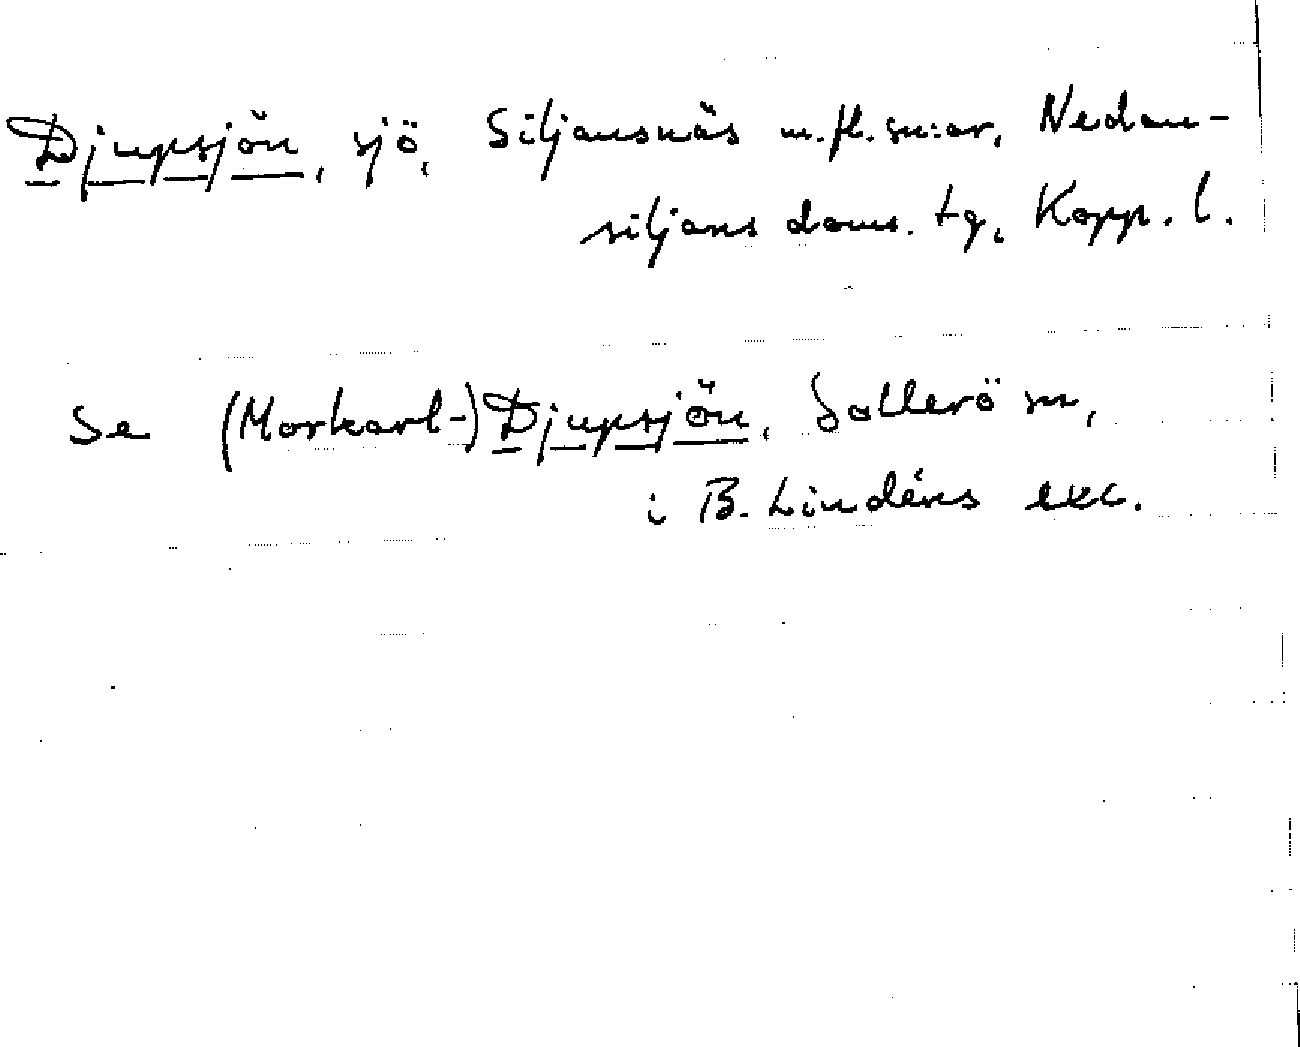 Djupsjön, sjö, Siljansnäs m.fl. sn:ar, Nedan-
siljans doms. tg, Kopp. l.
Se (Morkarl-)Djupsjön, Sollerö sn,
i B. Lindéns exc.